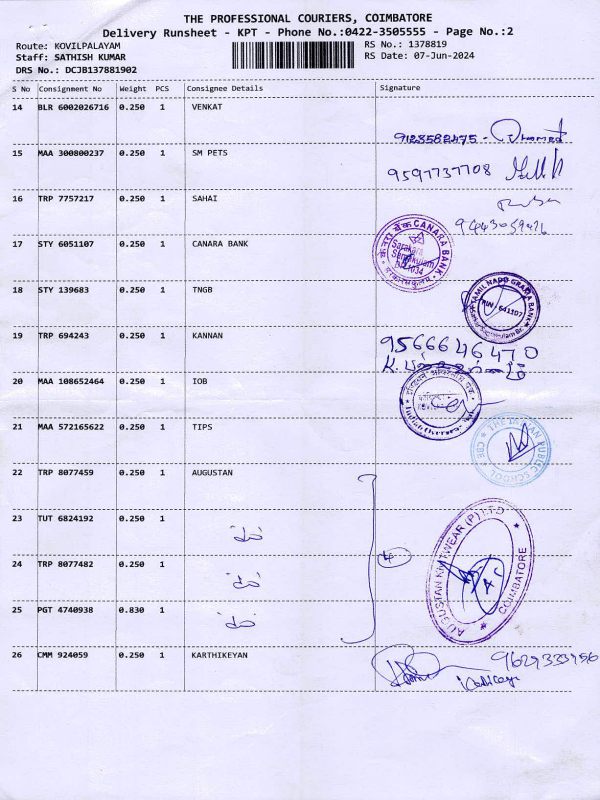 THE PROFESSIONAL COURIERS, COIMBATORE
Delivery Runsheet - KPT - Phone No.:0422-3505555 - Page No.:2
Route: KOVILPALAYAM
Staff: SATHISH KUMAR
DRS No.: DCJB137881902
RS No.: 1378819
RS Date: 07-Jun-2024
S No Consignment No Weight PCS Consignee Details Signature
14 BLR 6002026716 0.250 1 VENKAT
9128582475 -
15 MAA 300800237 0.250 1 SM PETS
9597737708
16 TRP 7757217 0.250 1 SAHAI
17 STY 6051107 0.250 1 CANARA BANK
केनरा बैंक CANARA BANK
18 STY 139683 0.250 1 TNGB
TAMIL NADU GRAMA BANK
PIN - 641107
19 TRP 694243 0.250 1 KANNAN
9566646470
20 MAA 108652464 0.250 1 IOB
Indian Overseas Bank
21 MAA 572165622 0.250 1 TIPS
THE INDIAN PUBLIC SCHOOL
CBE
22 TRP 8077459 0.250 1 AUGUSTAN
23 TUT 6824192 0.250 1
24 TRP 8077482 0.250 1
4
AUGUSTAN KNITWEAR (P) LTD
COIMBATORE
25 PGT 4740938 0.830 1
26 CMM 924059 0.250 1 KARTHIKEYAN